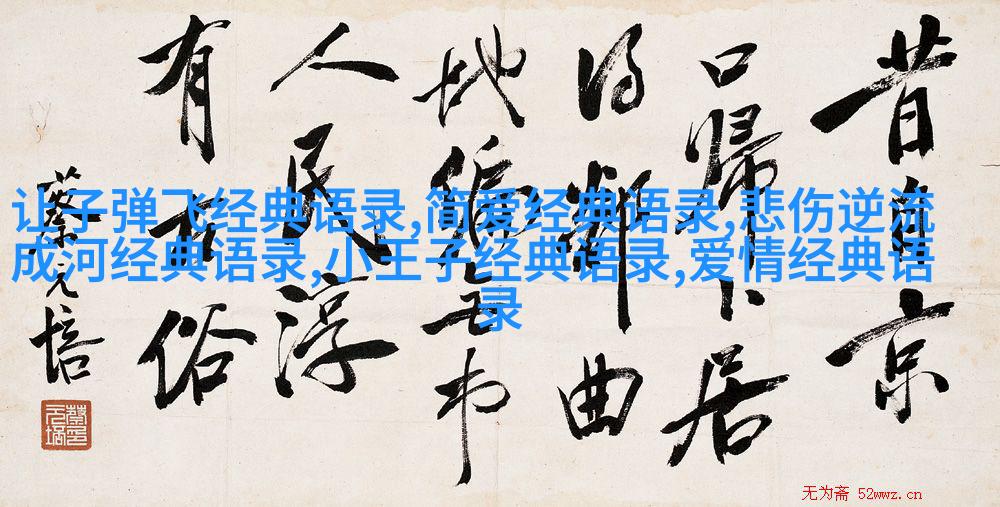 昔自京
口歸卜居
得鄰曲
地偏無市
人民淳
有古俗
蔡元培
让子弹飞经典语录,简爱经典语录,悲伤逆流
成河经典语录,小王子经典语录,爱情经典语
录
无为斋 52wwz.cn